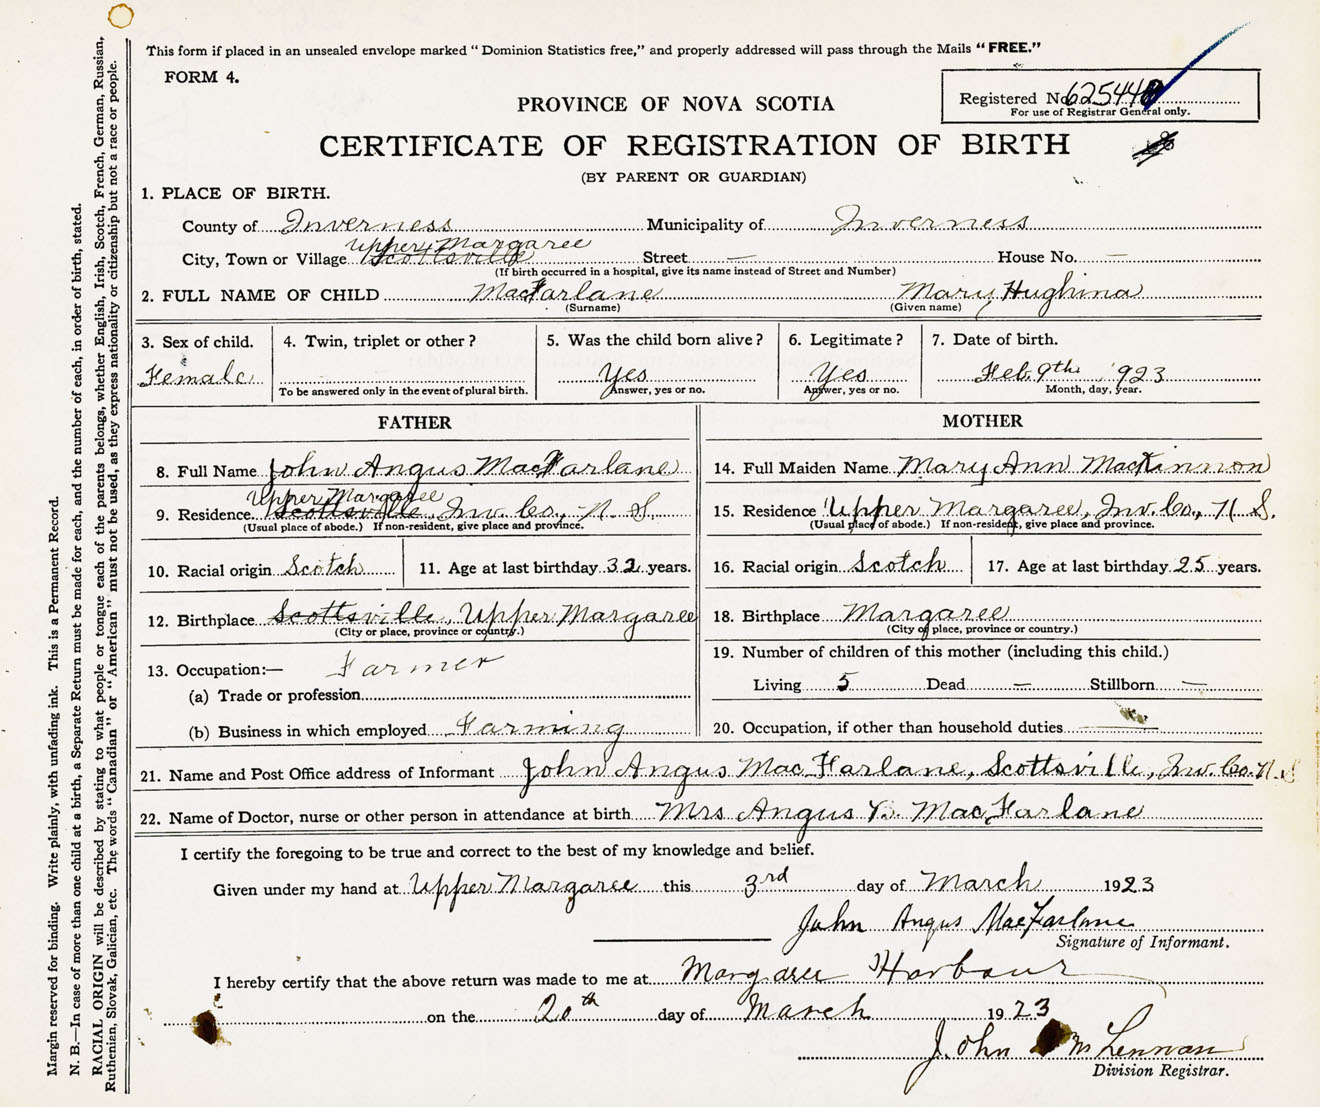 This form if placed in an unsealed envelope marked "Dominion Statistics free," and properly addressed will pass through the Mails "FREE."
FORM 4.
Registered No. 625448
For use of Registrar General only.
PROVINCE OF NOVA SCOTIA
CERTIFICATE OF REGISTRATION OF BIRTH
(BY PARENT OR GUARDIAN)
1. PLACE OF BIRTH.
County of Inverness Municipality of Inverness
Upper Margaree
City, Town or Village Scottsville Street — House No. —
(If birth occurred in a hospital, give its name instead of Street and Number)
2. FULL NAME OF CHILD MacFarlane Mary Hughina
(Surname) (Given name)
3. Sex of child. 4. Twin, triplet or other? 5. Was the child born alive? 6. Legitimate? 7. Date of birth.
Female Yes Yes Feb. 9th 1923
To be answered only in the event of plural birth. Answer, yes or no. Answer, yes or no. Month, day, year.
FATHER
8. Full Name John Angus MacFarlane
Upper Margaree
9. Residence Scottsville, Inv. Co., N. S.
(Usual place of abode.) If non-resident, give place and province.
10. Racial origin Scotch 11. Age at last birthday 32 years.
12. Birthplace Scottsville, Upper Margaree
(City or place, province or country.)
13. Occupation:— Farmer
(a) Trade or profession
(b) Business in which employed Farming
MOTHER
14. Full Maiden Name Mary Ann MacKinnon
15. Residence Upper Margaree, Inv. Co., N S.
(Usual place of abode.) If non-resident, give place and province.
16. Racial origin Scotch 17. Age at last birthday 25 years.
18. Birthplace Margaree
(City or place, province or country.)
19. Number of children of this mother (including this child.)
Living 5 Dead — Stillborn —
20. Occupation, if other than household duties —
21. Name and Post Office address of Informant John Angus MacFarlane, Scottsville, Inv. Co. N. S
22. Name of Doctor, nurse or other person in attendance at birth Mrs Angus B. MacFarlane
I certify the foregoing to be true and correct to the best of my knowledge and belief.
Given under my hand at Upper Margaree this 3rd day of March 1923
John Angus MacFarlane
Signature of Informant.
I hereby certify that the above return was made to me at Margaree Harbour
on the 20th day of March 1923
John McLennan
Division Registrar.
Margin reserved for binding. Write plainly, with unfading ink. This is a Permanent Record.
N. B.—In case of more than one child at a birth, a Separate Return must be made for each, and the number of each, in order of birth, stated.
RACIAL ORIGIN will be described by stating to what people or tongue each of the parents belongs, whether English, Irish, Scotch, French, German, Russian,
Ruthenian, Slovak, Galician, etc. The words "Canadian" or "American" must not be used, as they express nationality or citizenship but not a race or people.